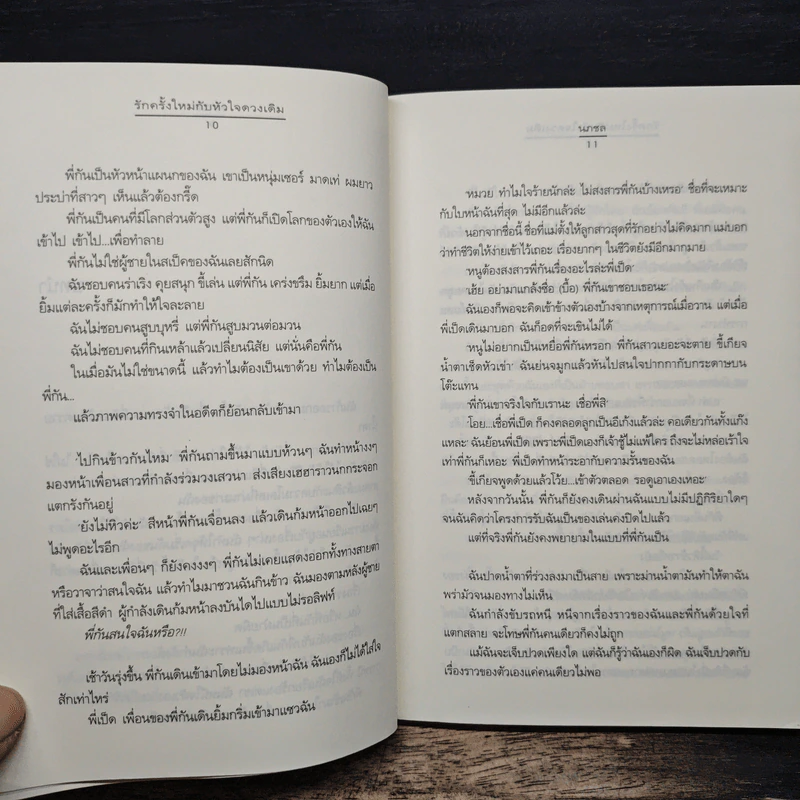 รักครั้งใหม่กับหัวใจดวงเดิม
10
พี่กันเป็นหัวหน้าแผนกของฉัน เขาเป็นหนุ่มเซอร์ มาดเท่ ผมยาว
ประบ่าที่สาวๆ เห็นแล้วต้องกรี๊ด
พี่กันเป็นคนที่มีโลกส่วนตัวสูง แต่พี่กันก็เปิดโลกของตัวเองให้ฉัน
เข้าไป เข้าไป...เพื่อทำลาย
พี่กันไม่ใช่ผู้ชายในสเป็คของฉันเลยสักนิด
ฉันชอบคนร่าเริง คุยสนุก ขี้เล่น แต่พี่กัน เคร่งขรึม ยิ้มยาก แต่เมื่อ
ยิ้มแต่ละครั้งก็มักทำให้ใจละลาย
ฉันไม่ชอบคนสูบบุหรี่ แต่พี่กันสูบมวนต่อมวน
ฉันไม่ชอบคนที่กินเหล้าแล้วเปลี่ยนนิสัย แต่นั่นคือพี่กัน
ในเมื่อมันไม่ใช่ขนาดนี้ แล้วทำไมต้องเป็นเขาด้วย ทำไมต้องเป็น
พี่กัน...
แล้วภาพความทรงจำในอดีตก็ย้อนกลับเข้ามา
'ไปกินข้าวกันไหม' พี่กันถามขึ้นมาแบบห้วนๆ ฉันทำหน้างงๆ
มองหน้าเพื่อนสาวที่กำลังร่วมวงเสวนา ส่งเสียงเฮฮาราวนกกระจอก
แตกรังกันอยู่
'ยังไม่หิวค่ะ' สีหน้าพี่กันเจื่อนลง แล้วเดินก้มหน้าออกไปเฉยๆ
ไม่พูดอะไรอีก
ฉันและเพื่อนๆ ก็ยังคงงงๆ พี่กันไม่เคยแสดงออกทั้งทางสายตา
หรือวาจาว่าสนใจฉัน แล้วทำไมมาชวนฉันกินข้าว ฉันมองตามหลังผู้ชาย
ที่ใส่เสื้อสีดำ ผู้กำลังเดินก้มหน้าลงบันไดไปแบบไม่รอลิฟท์
พี่กันสนใจฉันหรือ?!!
เช้าวันรุ่งขึ้น พี่กันเดินเข้ามาโดยไม่มองหน้าฉัน ฉันเองก็ไม่ได้ใส่ใจ
สักเท่าไหร่
พี่เป็ด เพื่อนของพี่กันเดินยิ้มกริ่มเข้ามาแซวฉัน
นภชล
11
'หมวย ทำไมใจร้ายนักล่ะ ไม่สงสารพี่กันบ้างเหรอ' ชื่อที่จะเหมาะ
กับใบหน้าฉันที่สุด ไม่มีอีกแล้วล่ะ
นอกจากชื่อนี้ ชื่อที่แม่ตั้งให้ลูกสาวสุดที่รักอย่างไม่คิดมาก แม่บอก
ว่าทำชีวิตให้ง่ายเข้าไว้เถอะ เรื่องยากๆ ในชีวิตยังมีอีกมากมาย
'หนูต้องสงสารพี่กันเรื่องอะไรล่ะพี่เป็ด'
'เฮ้ย อย่ามาแกล้งซื่อ (บื้อ) พี่กันเขาชอบเธอนะ'
ฉันเองก็พอจะคิดเข้าข้างตัวเองบ้างจากเหตุการณ์เมื่อวาน แต่เมื่อ
พี่เป็ดเดินมาบอก ฉันก็อดที่จะเขินไม่ได้
'หนูไม่อยากเป็นเหยื่อพี่กันหรอก พี่กันสาวเยอะจะตาย ขี้เกียจ
น้ำตาเช็ดหัวเข่า' ฉันย่นจมูกแล้วหันไปสนใจปากกากับกระดาษบน
โต๊ะแทน
'พี่กันเขาจริงใจกับเรานะ เชื่อพี่สิ'
'โอย...เชื่อพี่เป็ด ก็คงคลอดลูกเป็นอีเก้งแล้วล่ะ คอเดียวกันทั้งแก๊ง
แหละ ฉันย้อนพี่เป็ด เพราะพี่เป็ดเองก็เจ้าชู้ไม่แพ้ใคร ถึงจะไม่หล่อเร้าใจ
เท่าพี่กันก็เหอะ พี่เป็ดทำหน้าระอากับความรั้นของฉัน
'ขี้เกียจพูดด้วยแล้วโว้ย...เข้าตัวตลอด รอดูเอาเองเหอะ'
หลังจากวันนั้น พี่กันก็ยังคงเดินผ่านฉันแบบไม่มีปฏิกิริยาใดๆ
จนฉันคิดว่าโครงการรับฉันเป็นของเล่นคงปิดไปแล้ว
แต่ที่จริงพี่กันยังคงพยายามในแบบที่พี่กันเป็น
ฉันปาดน้ำตาที่ร่วงลงมาเป็นสาย เพราะม่านน้ำตามันทำให้ตาฉัน
พร่ามัวจนมองทางไม่เห็น
ฉันกำลังขับรถหนี หนีจากเรื่องราวของฉันและพี่กันด้วยใจที่
แตกสลาย จะโทษพี่กันคนเดียวก็คงไม่ถูก
แม้ฉันจะเจ็บปวดเพียงใด แต่ฉันก็รู้ว่าฉันเองก็ผิด ฉันเจ็บปวดกับ
เรื่องราวของตัวเองแค่คนเดียวไม่พอ